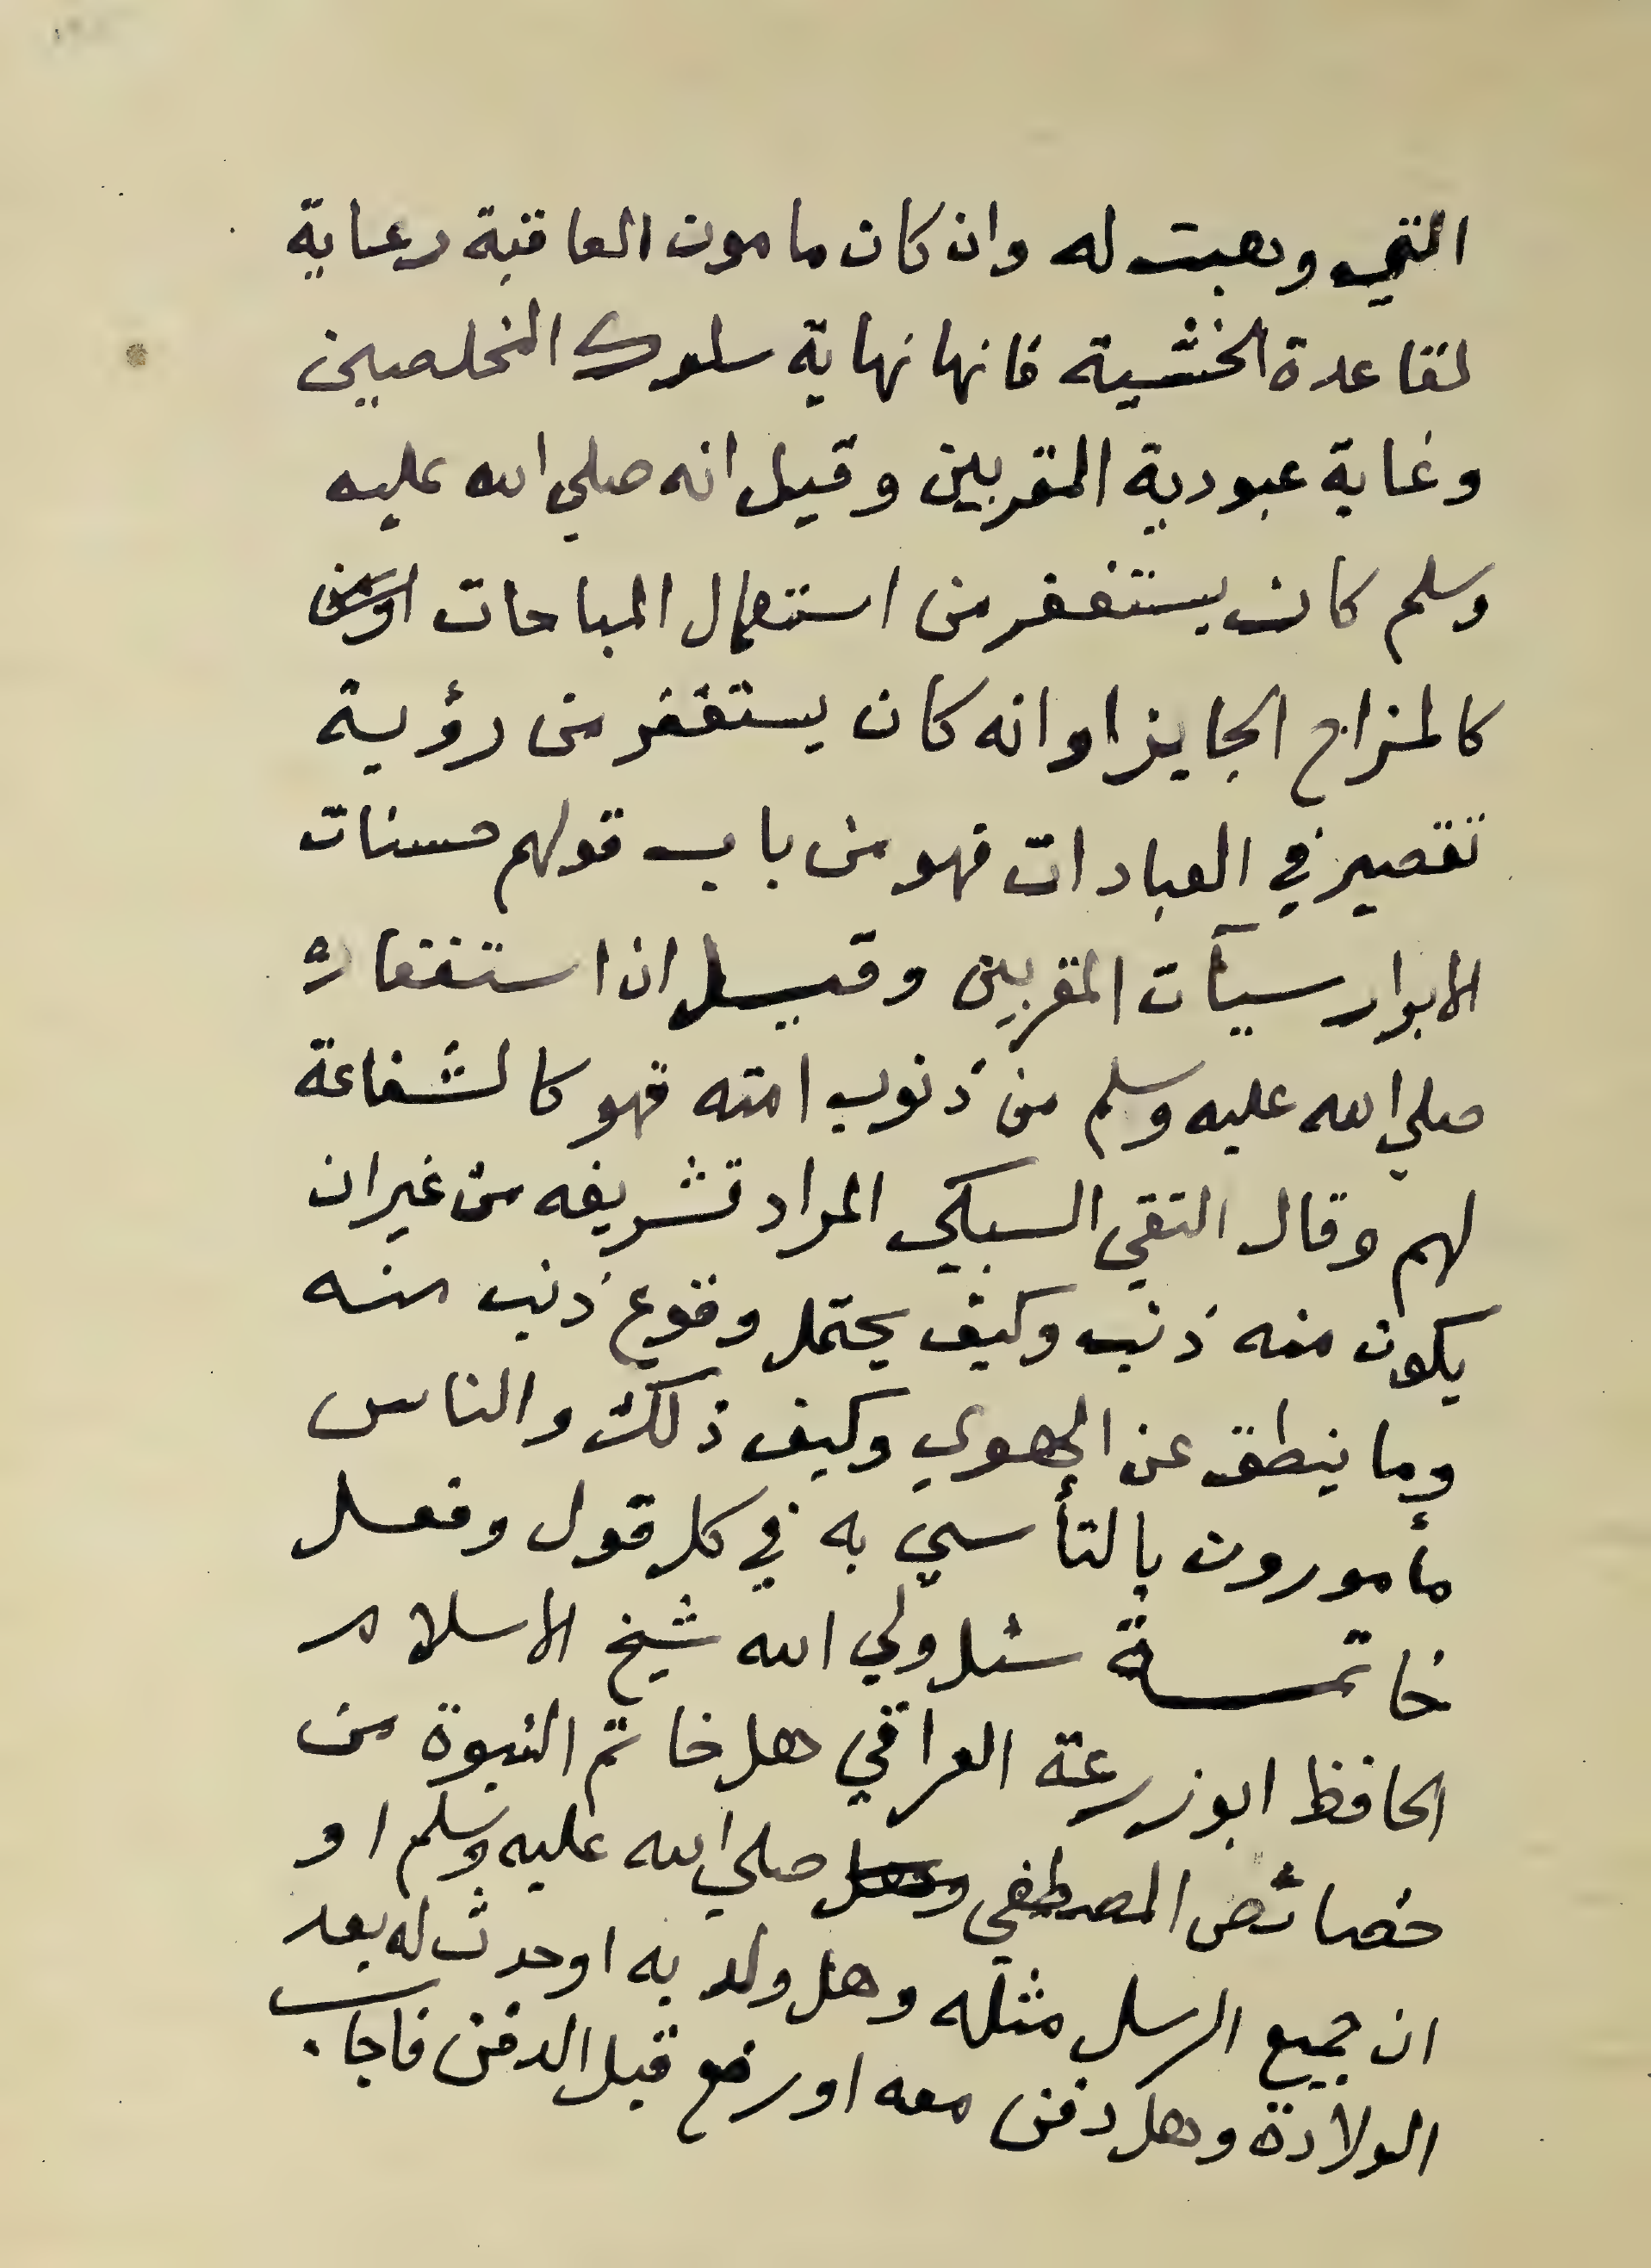 التي وهبت له وان كان مامون العاقبة رعاية
لقاعدة الخشية فانها نهاية سلوك المخلصين
وغاية عبودية المقربين وقيل انه صلي الله عليه
وسلم كان يستغفر من استعمال المباحات او من
كالمزاح الجايز او انه كان يستغفر من رؤية
تقصير في العبادات فهو من باب قولهم حسنات
الابرار سيآت المقربين وقيل ان استغفاره
صلي الله عليه وسلم من ذنوب امته فهو كالشفاعة
لهم وقال التقي السبكي المراد تشريفه من غير ان
يكون منه ذنب وكيف يحتمل وقوع ذنب منه
وما ينطق عن الهوي وكيف ذلك والناس
مأمورون بالتأسي به في كل قول وفعل
خاتمة سئل ولي الله شيخ الاسلام
الحافظ ابوزرعة العراقي هل خاتم النبوة من
خصائص المصطفي وهل صلي الله عليه وسلم او
ان جميع الرسل مثله وهل ولد به او حدث له بعد
الولادة وهل دفن معه او رفع قبل الدفن فاجاب